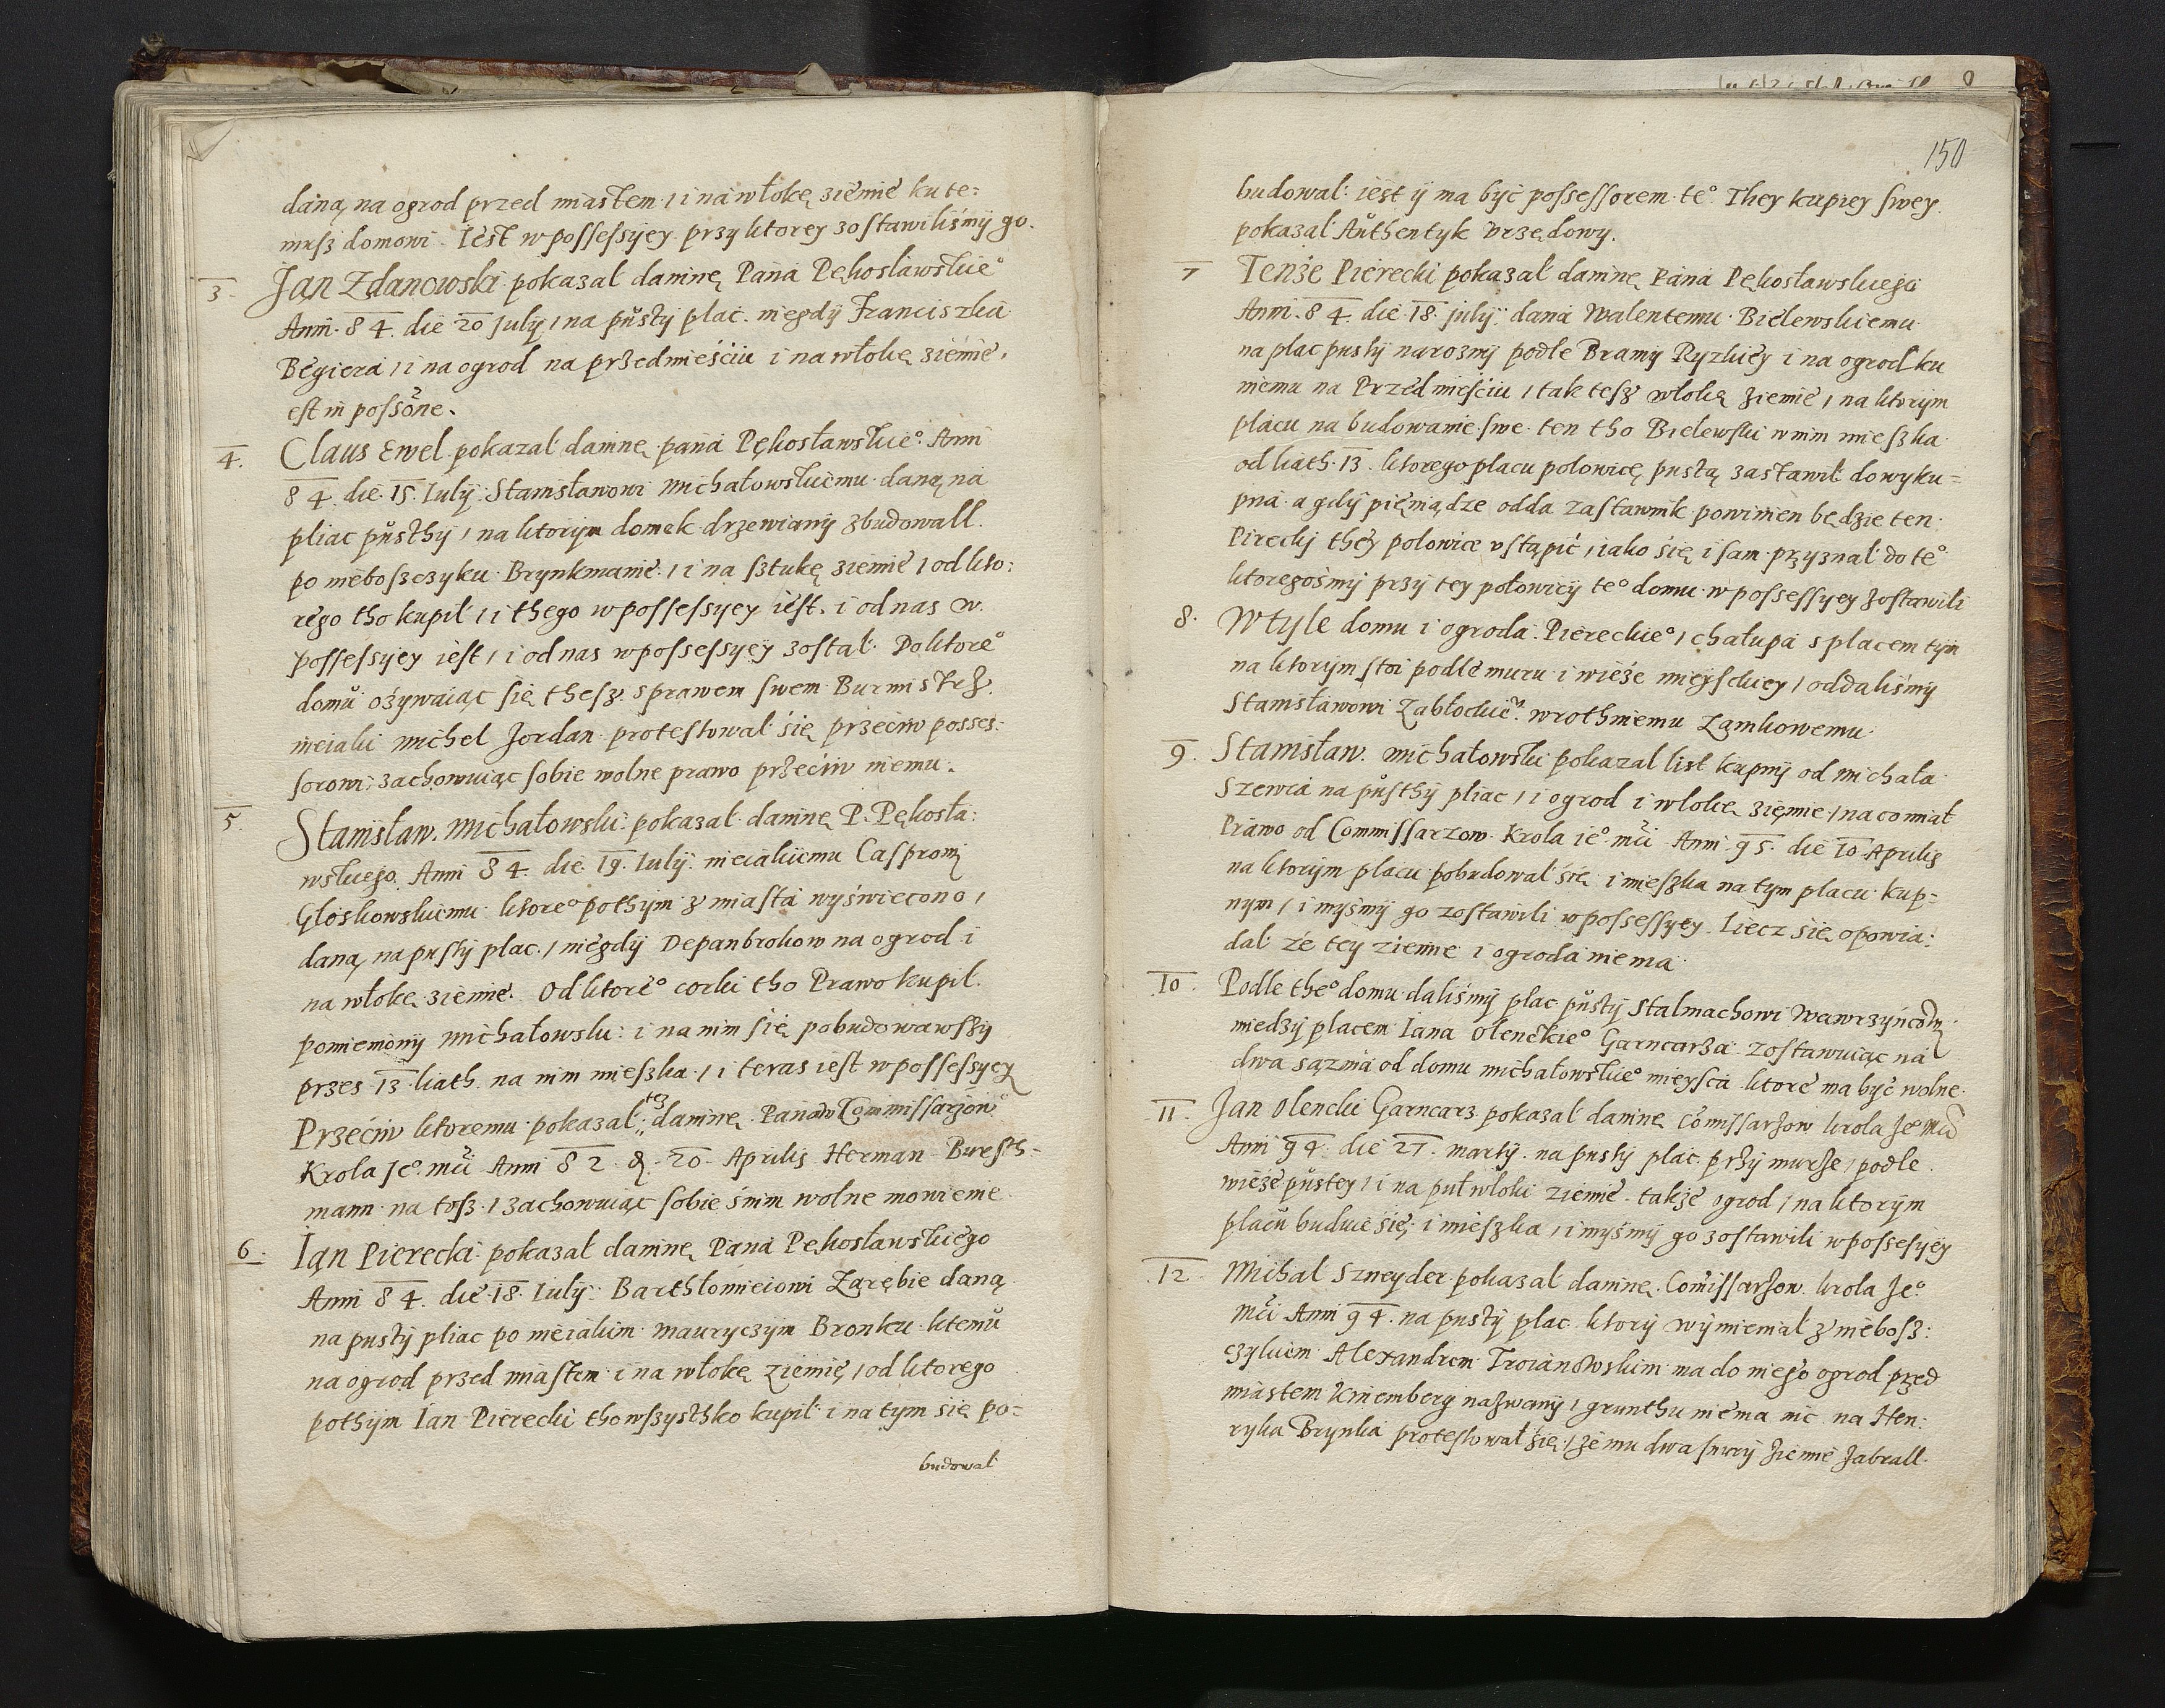 daną na ogrod przed miastem / i na włokę ziemie ku te=
musz domowi. Iest w possessyey przy ktorey zostawilismÿ go.
3. Jan Zdanowski pokazal daninę Pana Pękosławskie°
Anni. 84. die 20 julÿ / na pustÿ plac. niegdÿ Franciszka
Begiera / i na ogrod na przedmieściu i na włokę ziemie,
est in possõne.
4. Claus Ewel pokazal daninę pana Pękosławskie° Anni
84. die. 15. Iulÿ. Stanisławowi Michałowskiemu daną na
pliac pusthÿ / na ktorÿm domek drzewianÿ zbudowall.
po nieboszczyku Brynkmanie. / i na sztukę ziemie / od kto:
rego tho kupił / i thego w possessyey iest. i od nas w.
possessyey iest / i od nas w possessyey zostal. Do ktore°
domu ozywaiąc się thesz sprawem swem Burmistrz.
nieiaki Michel Jordan protestowal się przeciw posses:
sorowi; zachowuiąc sobie wolne prawo przećiw niemu.
5. Stanisław. Michałowski. pokazal daninę P. Pękosła:
wskiego. Anni 84. die. 19. Iulÿ. nieiakiemu Casprowi
Głoskowskiemu ktore° pothÿm z miasta wÿświecono /
daną na pustÿ plac. / niegdÿ Depanbrokow na ogrod i
na włokę ziemie. Od ktore° corki tho Prawo kupil.
pomienionÿ Michałowski: i na nim się pobudowawszÿ
przes 13 liath. na nim mieszka. / i teras iest w possessyey
Przećiw ktoremu pokazal tez daninę Panow Commissarzow
Krola Je° mći Anni 82. d. 20. Aprilis Herman Buresth=
mann na tosz. / zachowuiąc sobie śnim wolne mowienie
6. Ian Pierecki pokazal daninę Pana Pękosławskiego
Anni 84. die. 18. Iulÿ. Barthłomieiowi Zarębie daną
na pustÿ pliac po nieiakim Mauryczÿm Bronku. ktemu
na ogrod przed miastem i na włokę ziemię / od ktorego
pothÿm Ian Pierecki tho wszysthko kupił i na tym się po=
budowal
150
budowal: iest ÿ ma być possessorem te° They kupiey swey.
pokazal Authentyk Vrzędowy.
7 Tenże Pierecki pokazał daninę Pana Pękosławskiego
Anni. 84. die 18. julÿ. dana Walentemu Bielewskiemu
na plac pustÿ narożnÿ podle Bramÿ Ryzkiey i na ogrod ku
niemu na Przedmieściu / tak tesz włokę ziemie / na ktorÿm
placu na budowanie swe ten tho Bielewski w nim mieszka
od liath. 13. ktorego placu polowicę pustą zastawil do wyku=
pna. a gdÿ pieniądze odda zastawnik powinien będzie ten
Pirecky theÿ polowice vstąpić / iako się i sam przyznal do te°
ktoregosmÿ przÿ tey połowicÿ te° domu w possessyey zostawili
8. W tyle domu i ogroda Piereckie° / chałupa s placem tÿm
na ktorÿm stoi podle muru i wieże mieysckiey / oddalismÿ
Stanisławowi Zabłockiem. wrothniemu Zamkowemu
9. Stanisław. Michałowski pokazal list kupnÿ od Michała
Szewca na pusthÿ pliac / i ogrod i wlokę ziemie / na co miał
Prawo od Commissarzow Krola ie° mći Anni 95. die 10 Aprilis
na ktorÿm placu pobudowal się i mieszka na tym placu kup=
nym / i mÿsmÿ go zostawili w possessyey. Liecz się opowia:
dal że tey ziemie i ogroda nie ma
10. Podle the° domu dalismÿ plac pustÿ Stalmachowi Wawrzyńcowi
miedzÿ placem Iana Olenckie° Garncarza zostawuiąc na
dwa sąznia od domu Michałowskie° mieysca ktore ma być wolne.
11. Jan Olencki Garncarz pokazal daninę Comissarzow krola Je° Mći
Anni 94. die 27. martÿ na pustÿ plac. przÿ murze / podle
wieże pustey / i na puł włoki ziemie. takze ogrod / na ktorÿm
placu buduie się. i mieszka / i mÿsmÿ go zostawili w possesyey
12. Michal Szneyder pokazal daninę. Comissarzow. krola Je°
Mći Anni 94. na pustÿ plac ktorÿ wÿmienial z niebosz:
czykiem Alexandrem Troianowskim ma do niego ogrod przed
miastem Kniemberg nazwanÿ / grunthu niema nic na Hen:
ryka Brynka protestowal się / że mu dwa snurÿ ziemie zabrall.